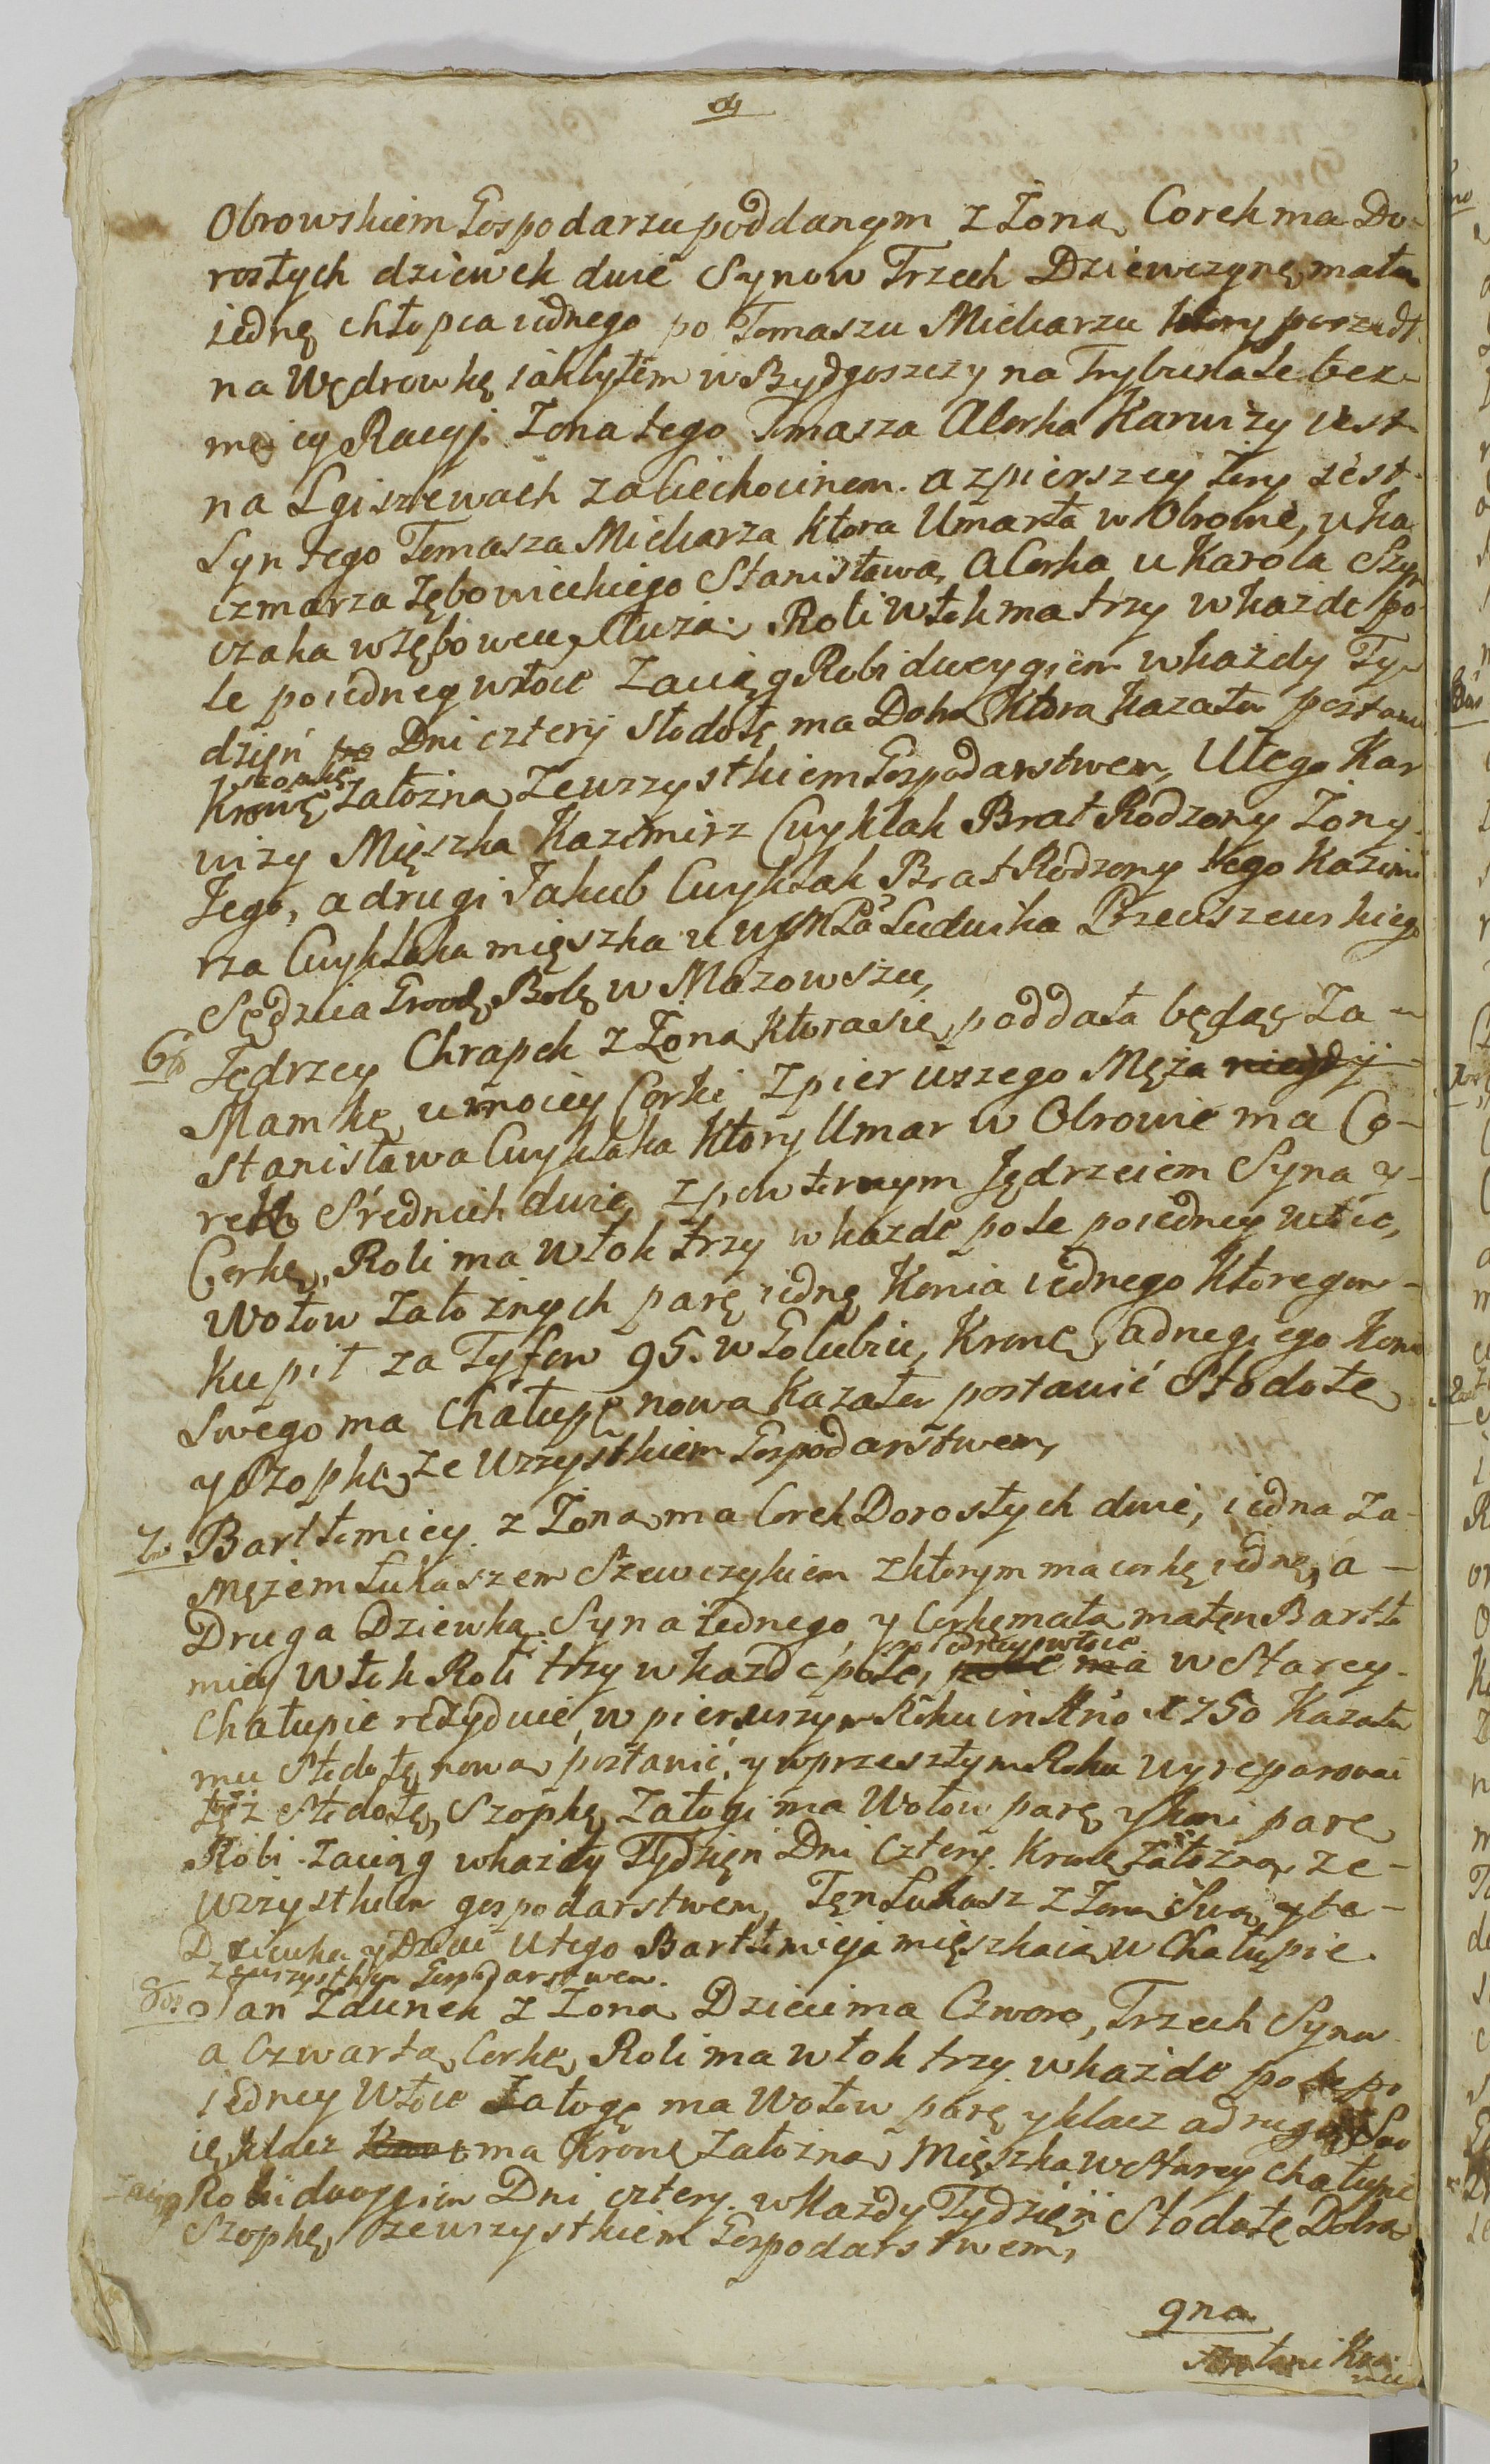 Obrowskiem Gospodarzu poddanym z Żoną, Corek ma Do-
rosłych dziewek dwie Synow Trzech Dziewczynę małą
iednę chłopca iednego po Tomaszu Mielcarzu ktory poszedł
na Wędrowkę iak byłem w Bydgoszczy na Trybunale bez
mey Racyi. Żona tego Tomasza a Corka Karwizy iest
na Lgiszewach za Ciechocinem. a z pierszey Żony iest
Syn tego Tomasza Mielcarza ktora Umarła w Obrowie, u ka
czmarza Zębowieckiego Stanisława, a Corka u Karola Szym
czaka w Zębowcu słuza. Roli włok ma trzy w każde po
le po iedney włoce Zaciąg Robi dwoygiem w każdy Ty
dzień Dni cztery Stodołę ma Dobrą ktorą kazałem postaw
Krowę Założną Ze wszystkiem Gospodarstwem, U tego Kar
wizy Mięszka Kazimirz Cwyklak Brat Rodzony Żony
Jego, a drugi Jakub Cwyklak Brat Rodzony tego Kazimi
rza Cwyklaka mięszka u Ludwika Przeciszewskiego
Sędzica Grodz: w Mazowszu,
6to Jędrzey Chrapek z Żoną ktora się poddała będąc Za
Mamkę u moiey Corki z pierwszego Męża
Stanisława Cwyklaka ktory Umar w Obrowie ma Co-
rek Srednich dwie, z powtornym Jędrzeiem Syna y
Corkę, Roli ma włok trzy w każde pole po iedney włoce,
Wołow Załoznych parę iednę Konia iednego ktoregom
kupił za Tyfow 95. w Golubiu, Krowę a drugiego konia
Swego ma Chałupę nową Kazałem postawić Stodołę
y Szopkę ze Wszystkiem Gospodarstwem,
7mo Bartłomiey z Żoną ma Corek Dorosłych dwie, iedna za
Mężem Łukaszem Szewczykiem z ktorym ma corkę iednę, a
Druga Dziewką Syna iednego, y Corkę małą ma ten Bartło
miey Włok Roli trzy w każde pole, po iedney włoce w Starey
Chałupie rezyduie, w pierwszym Roku in Ano 1750 Kazałem
mu Stodołę nową postawić, y w przeszłym Roku wyreparować
tęż Stodołę, Szopkę, Załogi ma Wołow parę y koni parę
Robi Zaciąg w każdy Tydzień Dni Cztery. Krowę Załozną ze
wszystkiem gospodarstwem, Ten Łukasz z Zoną Swą y ta
Dziewka y Dzieci U tego Bartłomieja mięszkaią w Chałupie
z wszystkim Gospodarstwem.
8vo Jan Zdunek z Żoną Dzieci ma Czworo, Trzech Synow
a Czwarta Corkę, Roli ma włok trzy w każde pole po
iedney Włoce Załogę ma Wołow parę y klacz a drugą Swo
ię klacz ma Krowę Założną Mięszka w Starey Chałupie
Zaciąg Robi dwoygiem Dni cztery w Każdy Tydzień Stodołę Dobrą
Szopkę, ze wszystkiem Gospodarstwem,
9na
Antoni